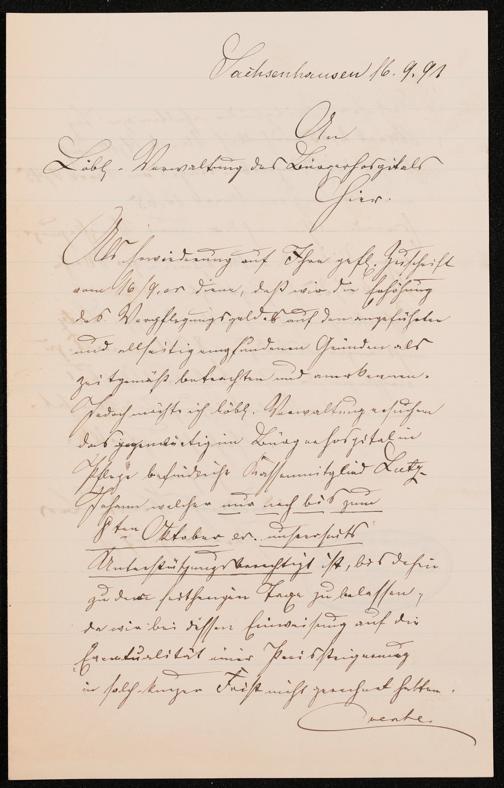 Sachsenhausen 16.9.91
An
Löbl. Verwaltung des Bürgerhospitals
Hier.
Als Erwiederung auf Ihre gefl. Zuschrift
vom 16/9. cr diene, daß wir die Erhöhung
des Verpflegungsgeldes auf den angeführten
und allseitig empfundenen Gründen als
zeitgemäß betrachten und anerkennen.
Jedoch möchte ich löbl. Verwaltung ersuchen
das gegenwärtig im Bürgerhospital in
Pflege befindliche Kassenmitglied Lutz
Johann welcher nur noch bis zum
8ten Oktober cr. unserseits
Unterstützungsberechtigt ist, bis dahin
zu dem seitherigen Taxe zu belassen,
da wir bei dessen Einweisung auf die
Eventualität einer Preissteigerung
in solch kurzer Frist nicht gerechnet hatten.